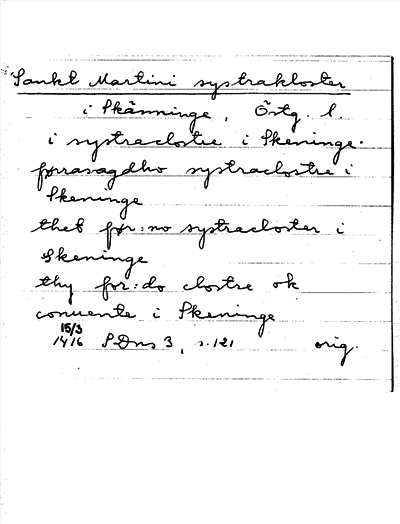 Sankt Martini systrakloster
i Skänninge, Östg. l.
i systraclostre i Skeninge.
førasagdho systraclostre i
Skeninge
thet før:no systracloster i
Skeninge
thy for:do clostre ok
conuente i Skeninge
15/3
1416 SDns 3, s. 121 orig.